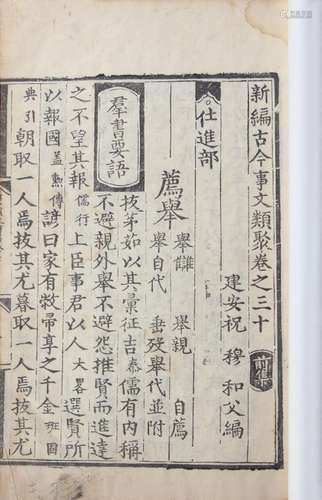 新編古今事文類聚卷之三十
前集
建安祝 穆 和父編
仕進部
薦舉
舉讎 舉親 自薦
舉自代 垂殁舉代並附
羣書要語
拔茅如以其彙征吉泰儒有內稱
不避親外舉不避怨推賢而進達
之不望其報儒行上臣事君以人大畧選賢所
以報國蓋勲傳諺曰家有敝帚享之千金班固
典引朝取一人焉拔其尤暮取一人焉拔其尤